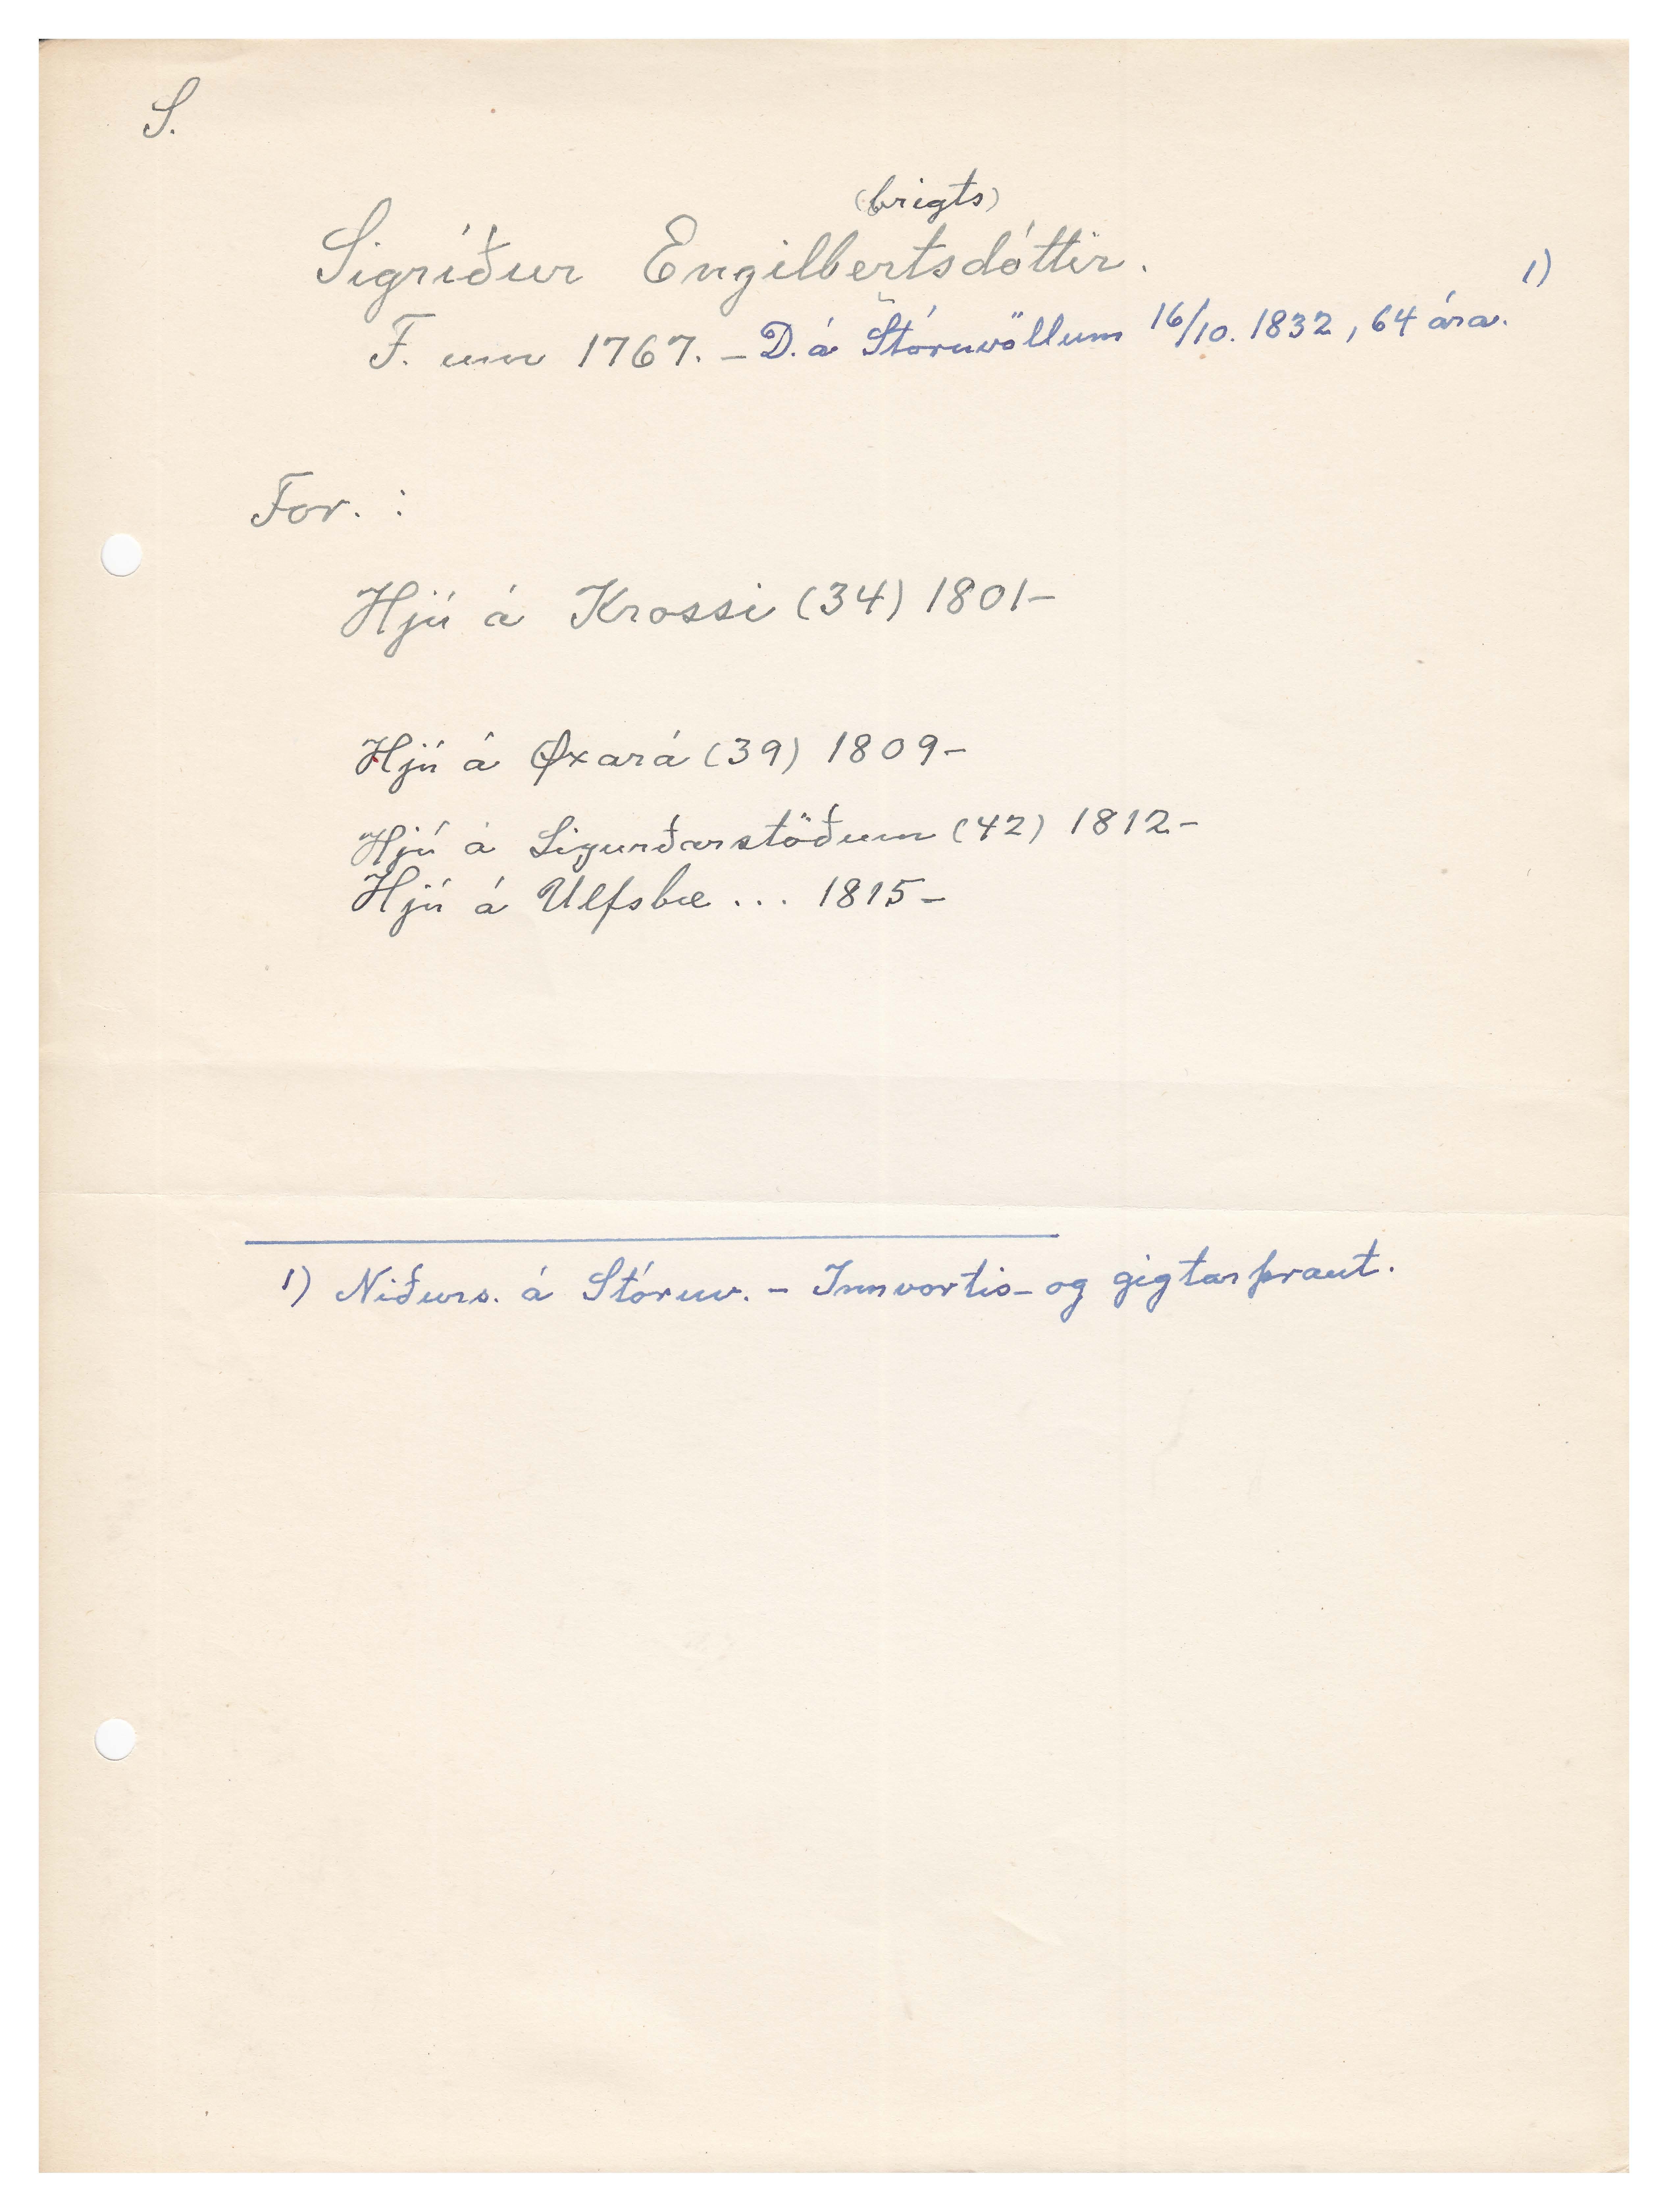 S.
(brigts)
Sigríður Engilbertsdóttir.
F. um 1767. – D. á Stóruvöllum 16/10. 1832, 64 ára. 1)
For. :
Hjú á Krossi (34) 1801–
Hjú á Øxará (39) 1809–
Hjú á Sigurðarstöðum (42) 1812–
Hjú á Ulfsbæ ... 1815–
1) Niðurs. á Stóruv. – Innvortis- og gigtarþraut.